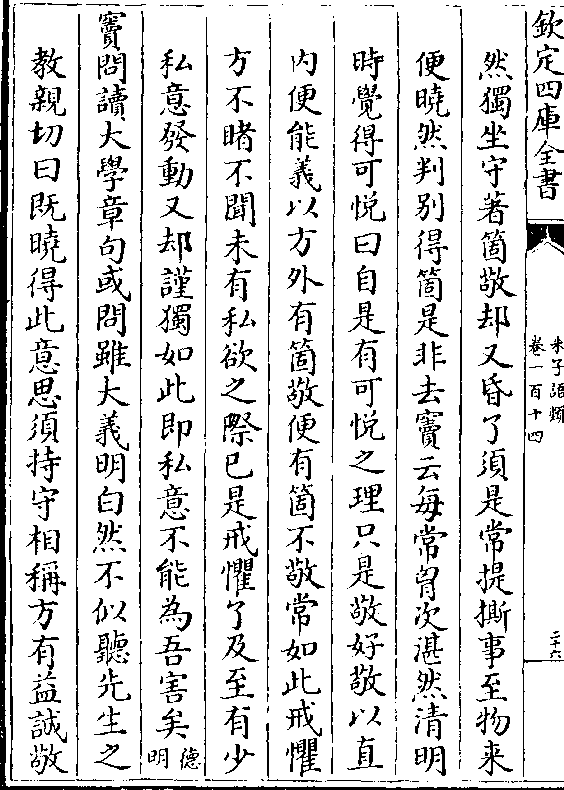 欽定四庫全書
朱子語類
卷一百十四
二十六
然獨坐守著箇敬却又昏了須是常提撕事至物来
便曉然判别得箇是非去竇云每常胷次湛然清明
時覺得可悦曰自是有可悦之理只是敬好敬以直
内便能義以方外有箇敬便有箇不敬常如此戒懼
方不睹不聞未有私欲之際已是戒懼了及至有少
私意發動又却謹獨如此即私意不能為吾害矣德明
竇問讀大學章句或問雖大義明白然不似聽先生之
教親切曰既曉得此意思須持守相稱方有益誠敬